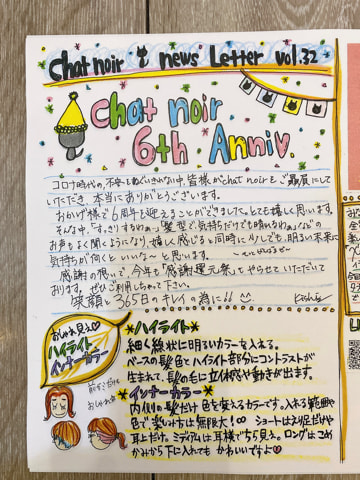 Chat noir news Letter vol.32
Chat noir
6th Anniv.
コロナ時代の不安をぬぐいきれない中、皆様がchat noirをご贔屓にして
いただき、本当にありがとうございます。
おかげ様で6周年を迎えることができました。とても嬉しく思います。
そんな中、「すっきりするわぁ〜」「髪型で気持ちだけでも晴れるわぁ」などの
お声もよく聞くようになり、嬉しく感じると同時に少しでも、明るい未来に
気持ちが向くといいな〜と思います。
感謝の想いで、今年も「感謝還元祭」をやらせていただいて
おります。ぜひご利用なさって下さい。
笑顔と365日のキレイの為に!!
おしゃれ見え
ハイライト
インナーカラー
前髪だけも
おしゃれ
*ハイライト*
細く線状に明るいカラーを入れる。
ベースの髪色とハイライト部分にコントラストが
生まれて、髪の毛に立体感や動きが出ます。
*インナーカラー*
内側の髪だけ色を変えるカラーです。入れる範囲や
色で楽しみ方は無限大!∞ ショートはえり足だけや
耳上だけ。ミディアムは耳横でちら見え。ロングはこめ
かみから下に入れても かわいいですよ♡